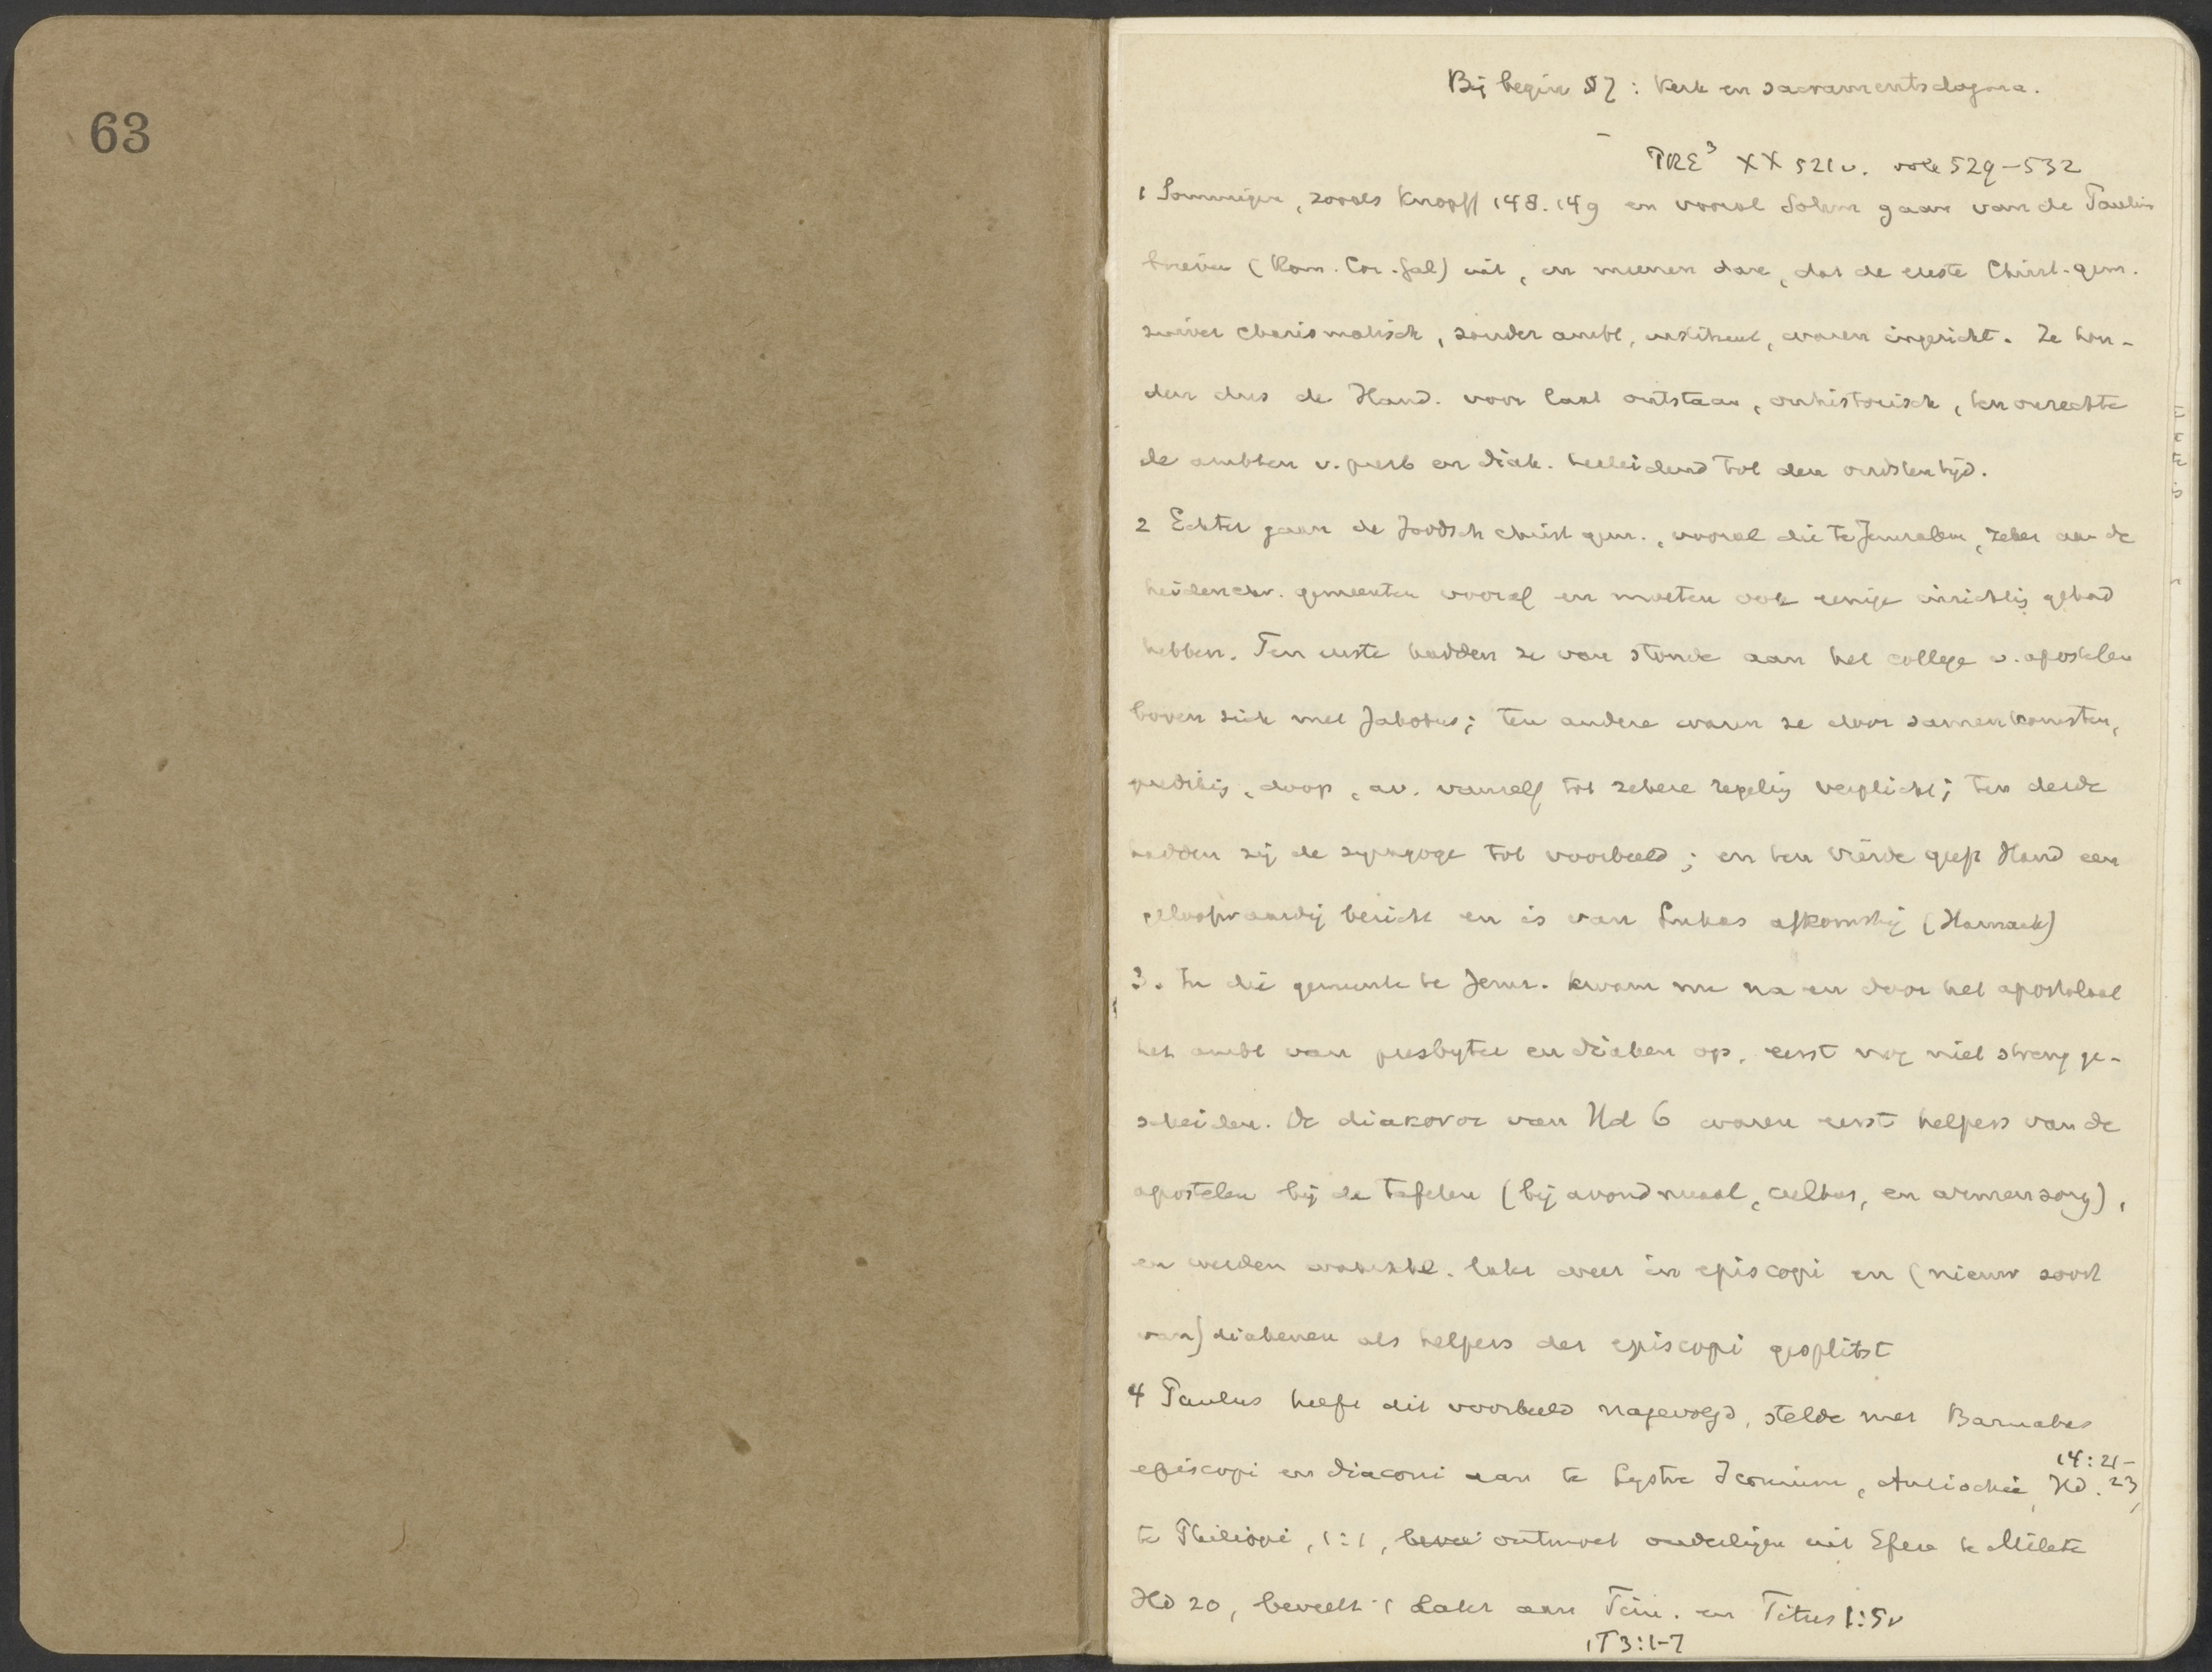 63
Bij begin § 7: Kerk en sacramentsdogma.
PRE³ XX 521v. ook 529-532
1 Sommigen, zooals Knopff 148.149 en vooral Sohm gaan van de Paulin
brieven (Rom. Cor. Gal) uit, en meenen dan, dat de eerste Christ. gem.
zuiver charismatisch, zonder ambt, instituut, waren ingericht. Ze hou-
den dus de Hand. voor laat ontstaan, onhistorisch, ten onrechte
de ambten v. presb en diak. herleidend tot den oudsten tijd.
2 Echter gaan de Joodsch christ gem., vooral die te Jeruzalem, zeker aan de
heidenchr. gemeenten vooraf en moeten ook eenige inrichtig gehad
hebben. Ten eerste hadden ze van stonde aan het college v. apostelen
boven zich met Jakobus; ten andere waren ze door samenkomsten,
predikig, doop, av. vanzelf tot zekere regelig verplicht; ten derde
hadden zij de synagoge tot voorbeeld; en ten vierde geeft Hand een
geloofwaardig bericht en is van Lukas afkomstig (Harnack)
3. In die gemeente te Jeruz. kwam nu na en door het apostolaat
het ambt van presbyter en diaken op, eerst nog niet streng ge-
scheiden. De diakonoi van Hd 6 waren eerst helpers van de
apostelen bij de tafelen (bij avondmaal, cultus, en armenzorg),
en werden later weer in episcopi en (nieuw soort
van) diakenen als helpers der episcopi gesplitst
4 Paulus heeft dit voorbeeld nagevolgd, stelde met Barnabas
14:21-
episcopi en diaconi aan te Lystra Iconium, Antiochië, Hd. 23,
te Philippi, 1:1, ontmoet ouderlingen uit Efeze te Milete
Hd 20, beveelt 't later aan Tim. en Titus 1:5v
1T3:1-7